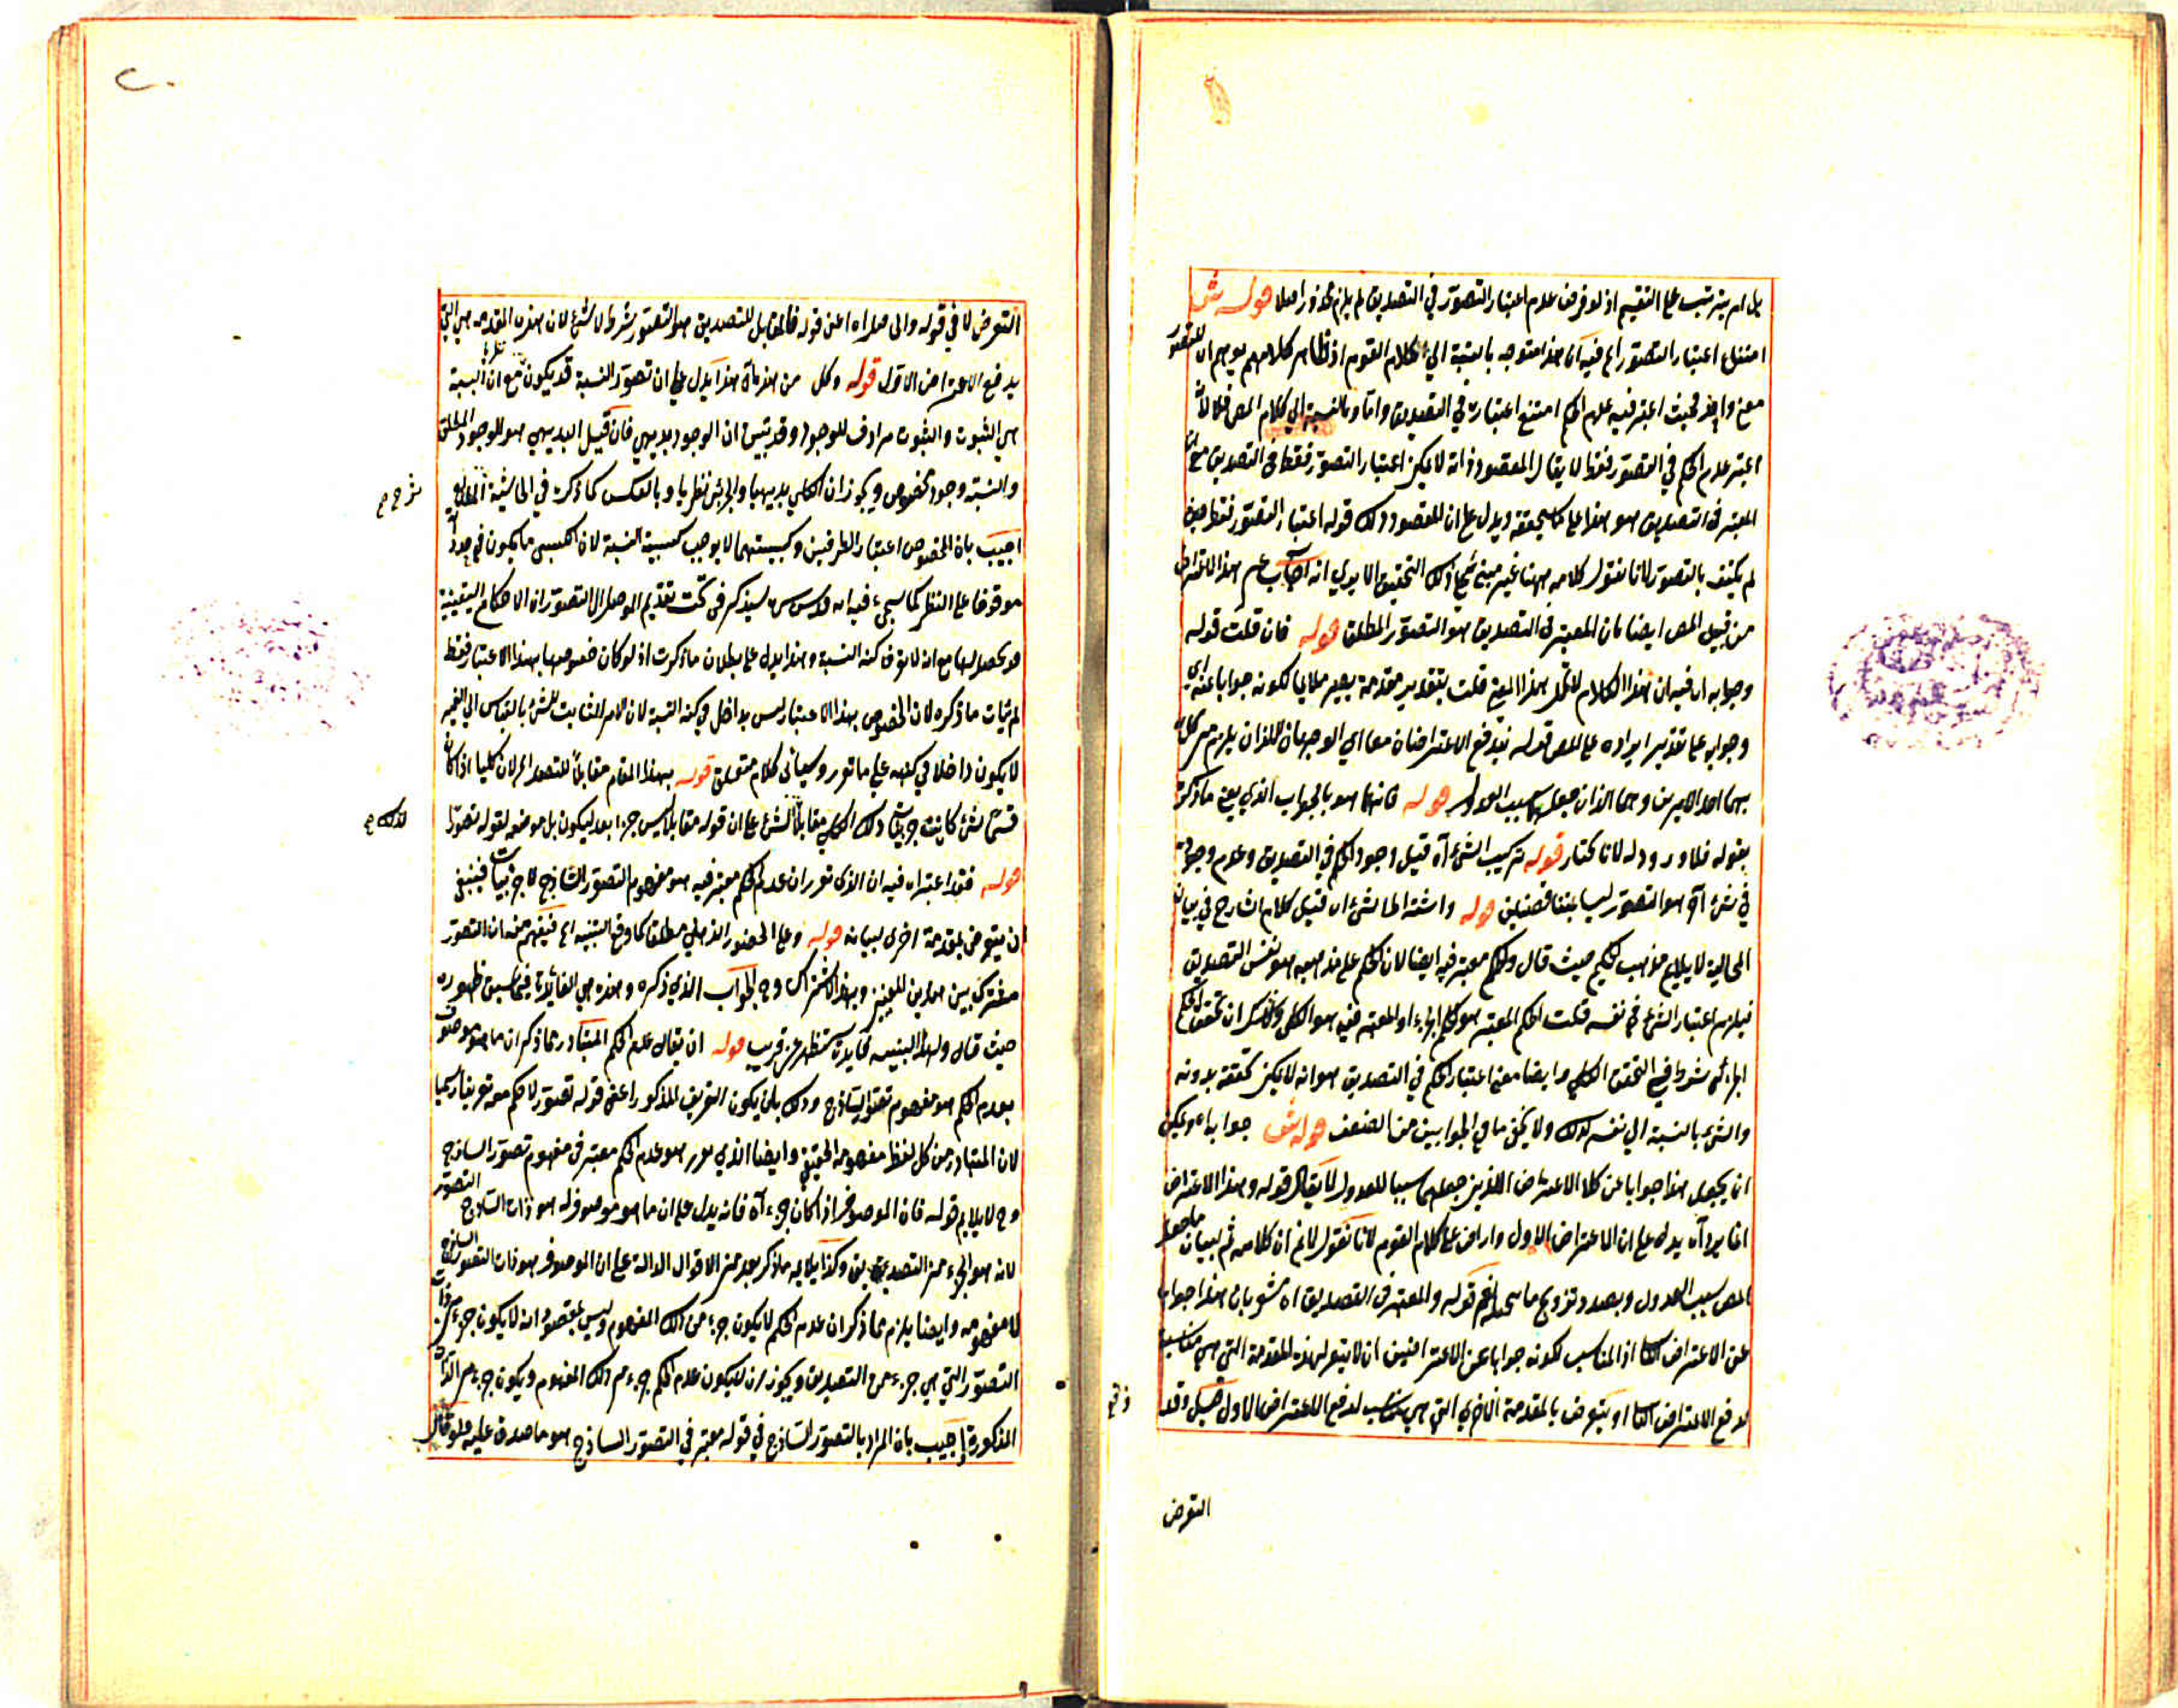 بل امر يترتب على التقسيم اذ لو فرض عدم اعتبار التصور في التصديق لم يلزم محذور اصلا قوله
امتنع اعتبار التصور اه فيه ان هذا متوجه بالنسبة الى كلام القوم اذ ظاهر كلامهم يوهم ان للتصور
معنى واحد فحيث اعتبر فيه عدم الحكم امتنع اعتباره في التصديق واما بالنسبة الى كلام المص فلا لانه
اعتبر عدم الحكم في التصور فقط لا يقال المقصود انه لا يمكن اعتبار التصور فقط في التصديق مع ان
المعتبر في التصديق هو هذا على ما سيحققه ويدل على ان المقصود ذلك قوله اعتبار التصور فقط حيث
لم يكتف بالتصور لانا نقول كلامه ههنا غير مبني على ذلك التحقيق الا يرى انه اجاب عن هذا الاعتراض
من قبل المص ايضا بان المعتبر في التصديق هو التصور المطلق قوله فان قلت قوله
وجوابه اه فيه ان هذا الكلام هذا المعنى قلت بتقدير مقدمة يصير ملايما لكونه جوابا عنه اي
وجوابه على تقدير ايراده على المص قوله يندفع الاعتراضان معا اي الوجهان اللذان يلزم من كل
بهما احد الامرين وهما اللذان جعلهما سبب العدول قوله فانهما هو بالجواب الذي يعني ما ذكره
بقوله فلا ورود له لانا نختار قوله تركيب الشيء اه قيل وجود الحكم في التصديق وعدم وجوده
في شيء اخر هو التصور ليسا بمتناقضين قوله واشتراط الشيء اه قيل كلام الشارح في بيان
المحالية لا يلايم مذهب الحكيم حيث قال والحكم معتبر فيه ايضا لان الحكم على مذهبه هو نفس التصديق
فيلزم اعتبار الشيء في نفسه قلت الحكم المعتبر هو الحكم الجزئي او المعتبر فيه هو الكلي ولا شك ان تحقق الحكم
الجزئي شرط في التحقق الكلي وايضا معنى اعتبار الحكم في التصديق هو انه لا يمكن تحققه بدونه
والشيء بالنسبة الى نفسه كذلك ولا يخفى ما في الجوابين من الضعف قوله جوابه اه ويمكن
ان يجعل هذا جوابا عن كلا الاعتراض اللذين جعلهما سببا للعدول لا يقال قوله وهذا الاعتراض
انما يرد اه يدل على ان الاعتراض الاول وارد على كلام القوم لانا نقول لا نم ان كلامه ثم لبيان ما جعل
المص سبب العدول وبصدد تزويج ما نعم قوله والمعتبر في التصديق اه مشعر بان هذا جواب
عن الاعتراض الثا اذ المناسب لكونه جوابا عن الاعتراضين ان لا يتعرض لهذه المقدمة التي هي مناسبة
لدفع الاعتراض الثا او يتعرض بالمقدمة الاخرى التي هي يناسب لدفع الاعتراض الاول قيل وقد
التعرض
التعرض لا في قوله والى ما اراه اعنى قوله فالمقابل للتصديق هو التصور بشرط لا شيء لان هذه المقدمة هي التي
يدفع الاعتراض الاول قوله وكل من هذه اه هذا يدل على ان تصور النسبة قد يكون نظريا مع ان النسبة
هي الثبوت والثبوت مرادف للوجود وقد تبين ان الوجود بديهي فان قيل البديهي هو الوجود المطلق
والنسبة وجود مخصوص ويجوز ان الكلي بديهيا والجزئي نظريا وبالعكس كما ذكره في الحاشية
اجيب بان الخصوص اعتبار الطرفين وكسبيتهما لا يوجب كسبية النسبة لان الكسبي ما يكون في حد ذاته
موقوفا على النظر كما سيجيء فيه انه قدس سره سيذكر في بحث تقديم الموصل الى التصور ان الاحكام اليقينية
قد يحصل لها مع انه لا يعرف كنه النسبة وهذا يدل على بطلان ما ذكرت اذ لو كان خصوصها بهذا الاعتبار فقط
لم يثبت ما ذكره لان الخصوص بهذا الاعتبار ليس بداخل في كنه النسبة لان الامر الثابت للشيء بالقياس الى الغير
لا يكون داخلا في كنهه على ما تقرر وسيأتي كلام متعلق قوله بهذا المقام مقابلا للتصور اه لان كليا اذا كان
قسم شيء كانت جزئيات ذلك الكلي مقابلا لشيء على ان قوله مقابلا ليس خبرا بعد ليكون بل موضعه لقوله تصورا
قوله فقد اعتبر اه فيه ان الذي تقرر ان عدم الحكم معتبر فيه هو مفهوم التصور الساذج لا جزئياته فينبغي
ان يتعرض لمقدمة اخرى لبيانه قوله وعلى الحضور الذهني مطلقا كما وقع التنبيه اه فيفهم منه ان التصور
مشترك بين هذين المعنيين وبهذا الاشتراك وح الجواب الذي ذكره وهذه هي الفائدة فيما سبق ظهوره
حيث قال ولهذا التنبيه فائدة ستظهر عن قريب قوله ان يقال عدم الحكم المتبادر مما ذكر ان ما هو موصوف
بعدم الحكم هو مفهوم تصور الساذج وذلك بان يكون التعريف المذكور اعنى قوله تصور لا حكم معه تعريفا رسميا
لان المتبادر من كل لفظ مفهومه الحقيقي وايضا الذي مر هو عدم الحكم معتبر في مفهوم تصور الساذج
وح لا يلايم قوله فان الموصوف اذا كان جزء اه فانه يدل على ان ما هو موصوف له هو ذات التصور الساذج
لانه هو الجزء من التصديق وكذا يلايمه ما ذكر بعد من الاقوال الدالة على ان الموصوف هو ذات التصور الساذج
لا مفهومه وايضا يلزم مما ذكر ان عدم الحكم لا يكون جزء من ذلك المفهوم وليس بمقصود انه لا يكون جزء من ذات
التصور التي هي جزء من التصديق ويجوز ان لا يكون عدم الحكم جزء من ذلك المفهوم ويكون جزء من الذات
المذكورة اجيب بان المراد بالتصور الساذج في قوله معتبر في التصور الساذج هو ما صدق عليه فلو قال